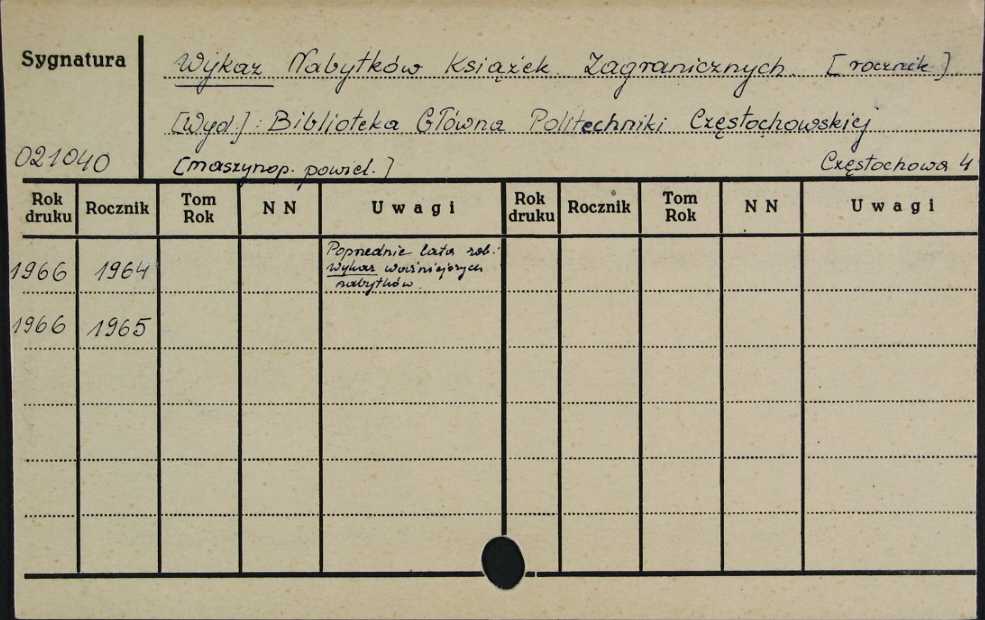 Sygnatura
Wykaz Nabytków Książek Zagranicznych. [rocznik]
[Wyd.]: Biblioteka Główna Politechniki Częstochowskiej
021040 [maszynop. powiel.] Częstochowa 4
Rok druku Rocznik Tom Rok N N Uwagi Rok druku Rocznik Tom Rok N N Uwagi
Poprzednie lata zob.:
1966 1964 Wykaz ważniejszych
nabytków.
1966 1965